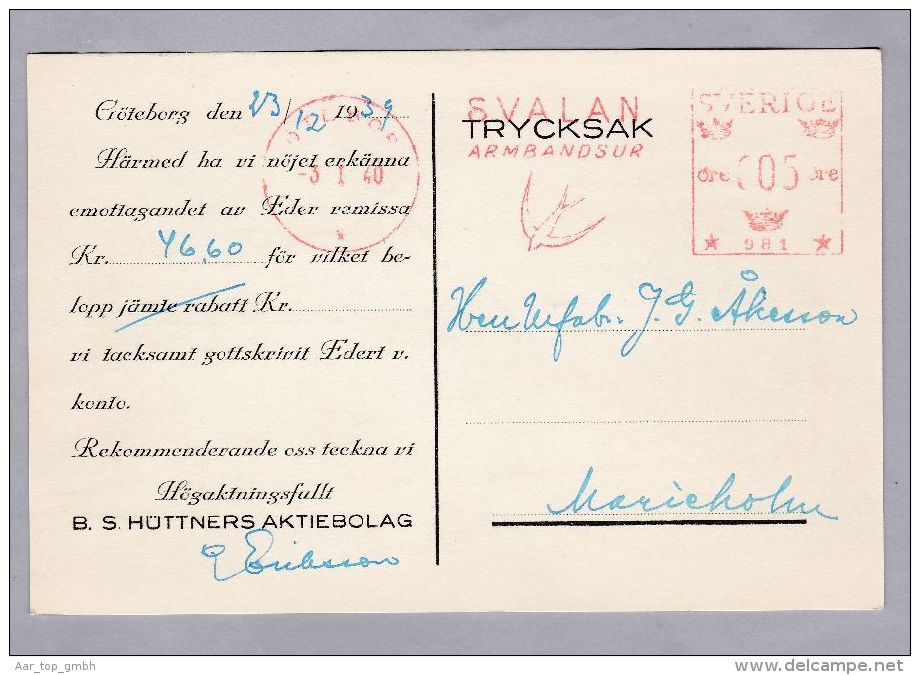 Göteborg den 23/12 1939
Härmed ha vi nöjet erkänna
emottagandet av Eder remissa
Kr. 46,60 för vilket be-
lopp jämte rabatt Kr.
vi tacksamt gottskrivit Edert v.
konto.
Rekommenderande oss teckna vi
Högaktningsfullt
B. S. HÜTTNERS AKTIEBOLAG
Eriksson
-3 1 40
SVALAN
TRYCKSAK
ARMBANDSUR
SVERIGE
öre 005 öre
981
Herr Urfab. J. G. Åkesson
Marieholm
Aar_top_gmbh
www.delcampe.net